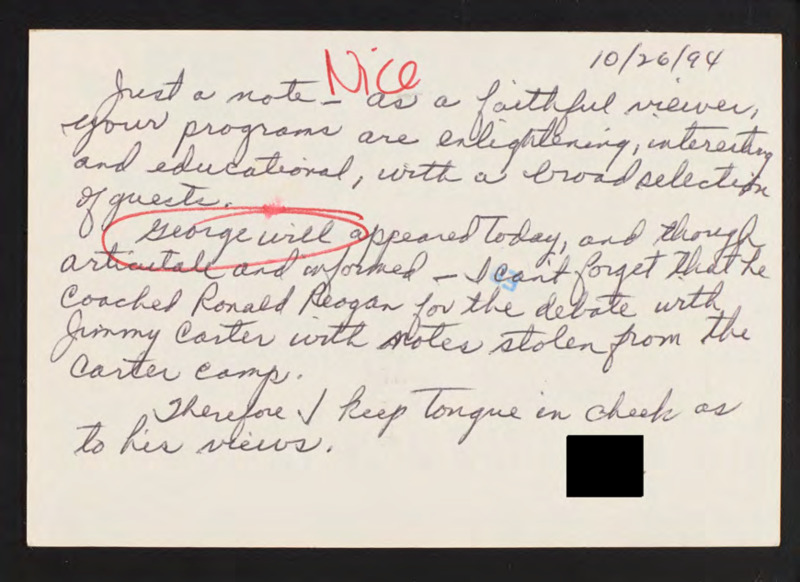 10/26/94
Nice
Just a note – as a faithful viewer,
your programs are enlightening, interesting
and educational, with a broad selection
of guests.
George will appeared today, and though
articulate and informed – I can't forget that he
coached Ronald Reagan for the debate with
Jimmy Carter with notes stolen from the
Carter camp.
Therefore I keep tongue in cheek as
to his views.